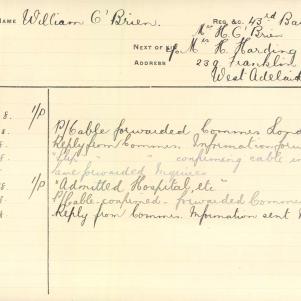 NAME William O'Brien. REG. &c. 43rd Ba
Mrs H. O'Brien
NEXT OF KIN c/o Mrs H. Harding
ADDRESS 239 Franklin
West Adelaid
8. 1/P P/Cable forwarded Commrs Lond
8. Reply from Commrs. Information forw
" " confirming cable
same forwarded Inquirers
8 1/P "Admitted Hospital, etc"
P/Cable confirmed - forwarded Comm
Reply from Commrs. Information sent